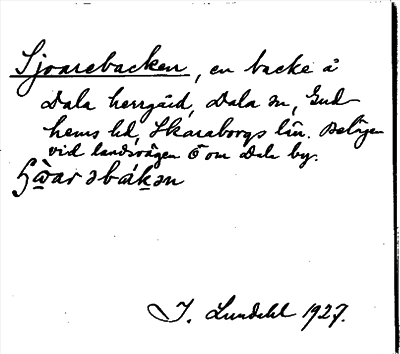 Sjoarebacken, en backe å
Dala herrgård, Dala sn, Gud-
hems hd, Skaraborgs län. Belägen
vid landsvägen ö om Dala by.
J. Lundahl 1927.